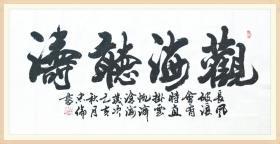 觀海聽濤
長風
破浪
會有
時直
掛雲
帆濟
滄海
歲次
秋月
書